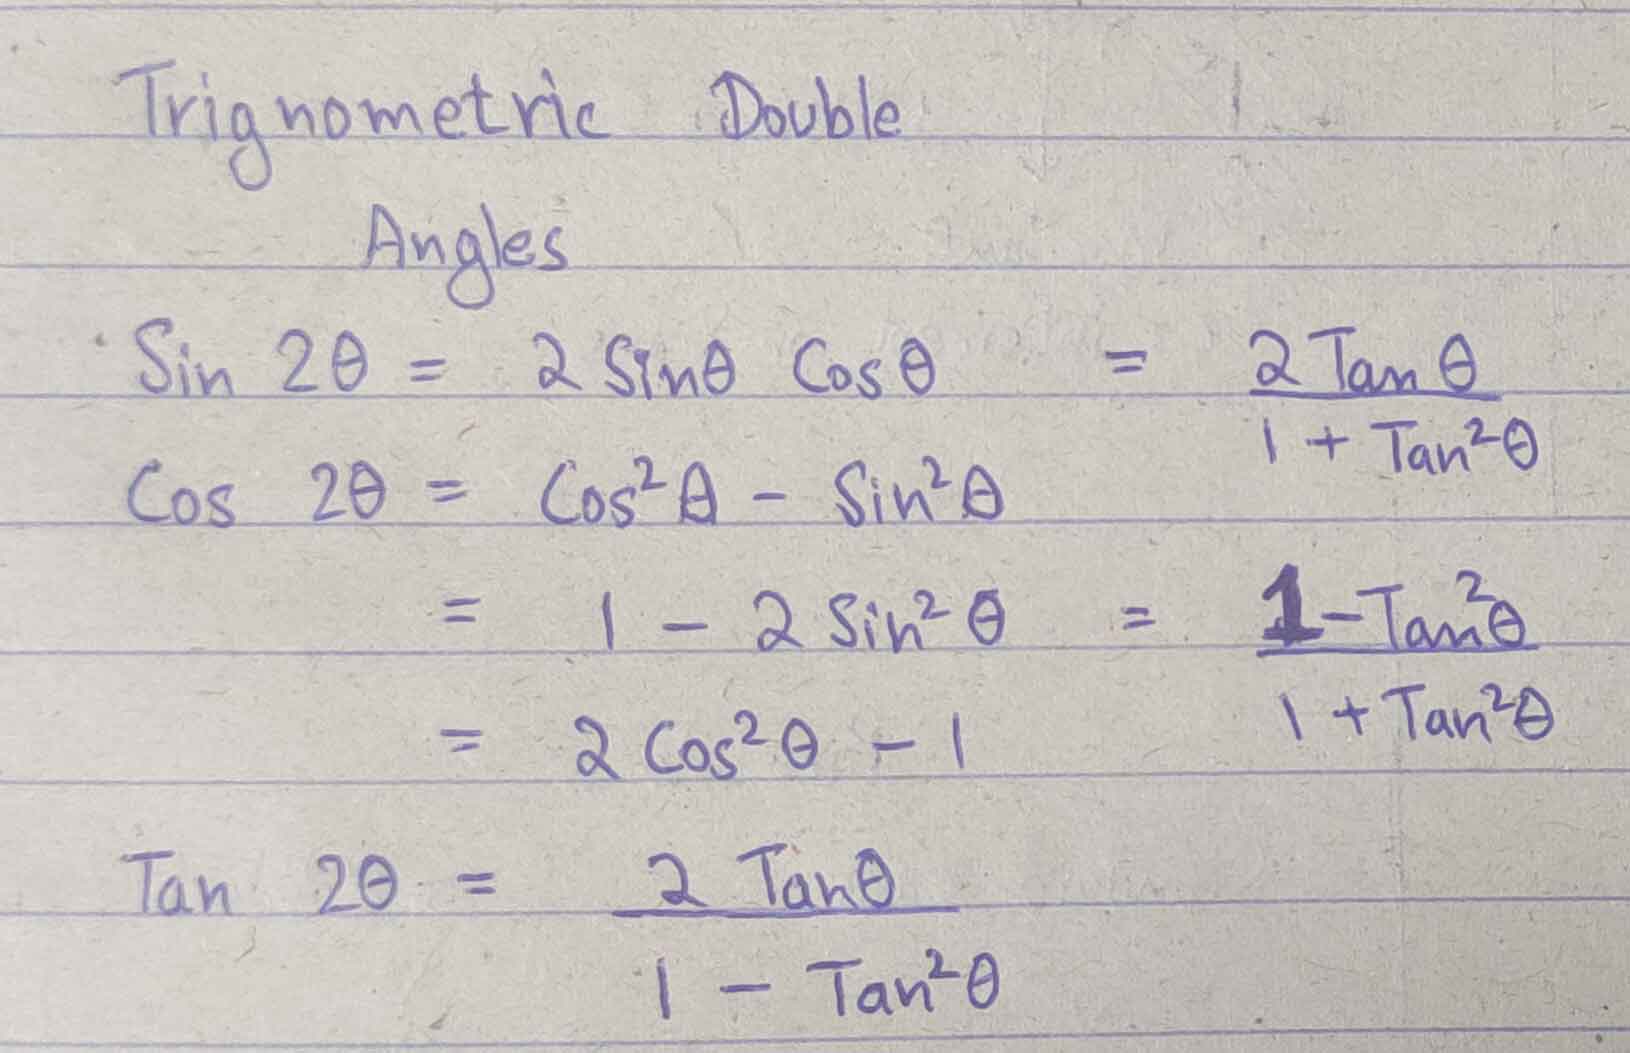 Trignometric Double
Angles
Sin 2θ = 2 Sinθ Cosθ = 2 Tan θ / 1 + Tan²θ
Cos 2θ = Cos²θ - Sin²θ
= 1 - 2 Sin²θ = 1 - Tan²θ / 1 + Tan²θ
= 2 Cos²θ - 1
Tan 2θ = 2 Tanθ / 1 - Tan²θ